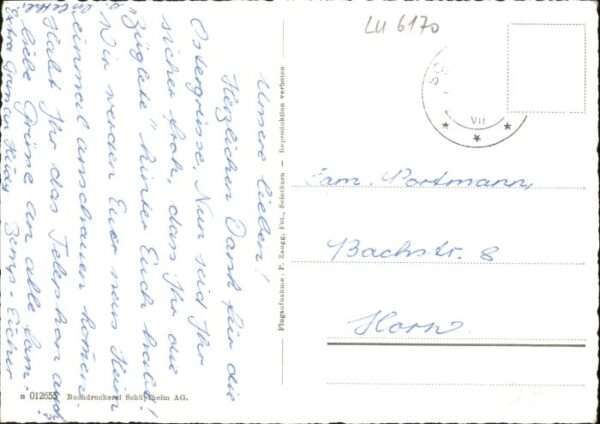 Unsere lieben!
Herzlichen Dank für die
Ostergrüsse. Nun seid Ihr
sicher froh, dass Ihr die
"Züglete" hinter Euch habt!
Wir werden Euer neues Heim
einmal anschauen kommen.
Habt Ihr das Telephon auch
liebe Grüsse an alle Fam.
LU 6170
VII
Fam. Portmann,
Bachstr. 8
Horw.
Flugaufnahme: P. Zaugg, Fot., Solothurn - Reproduktion verboten
n 012655 Buchdruckerei Schüpfheim AG.